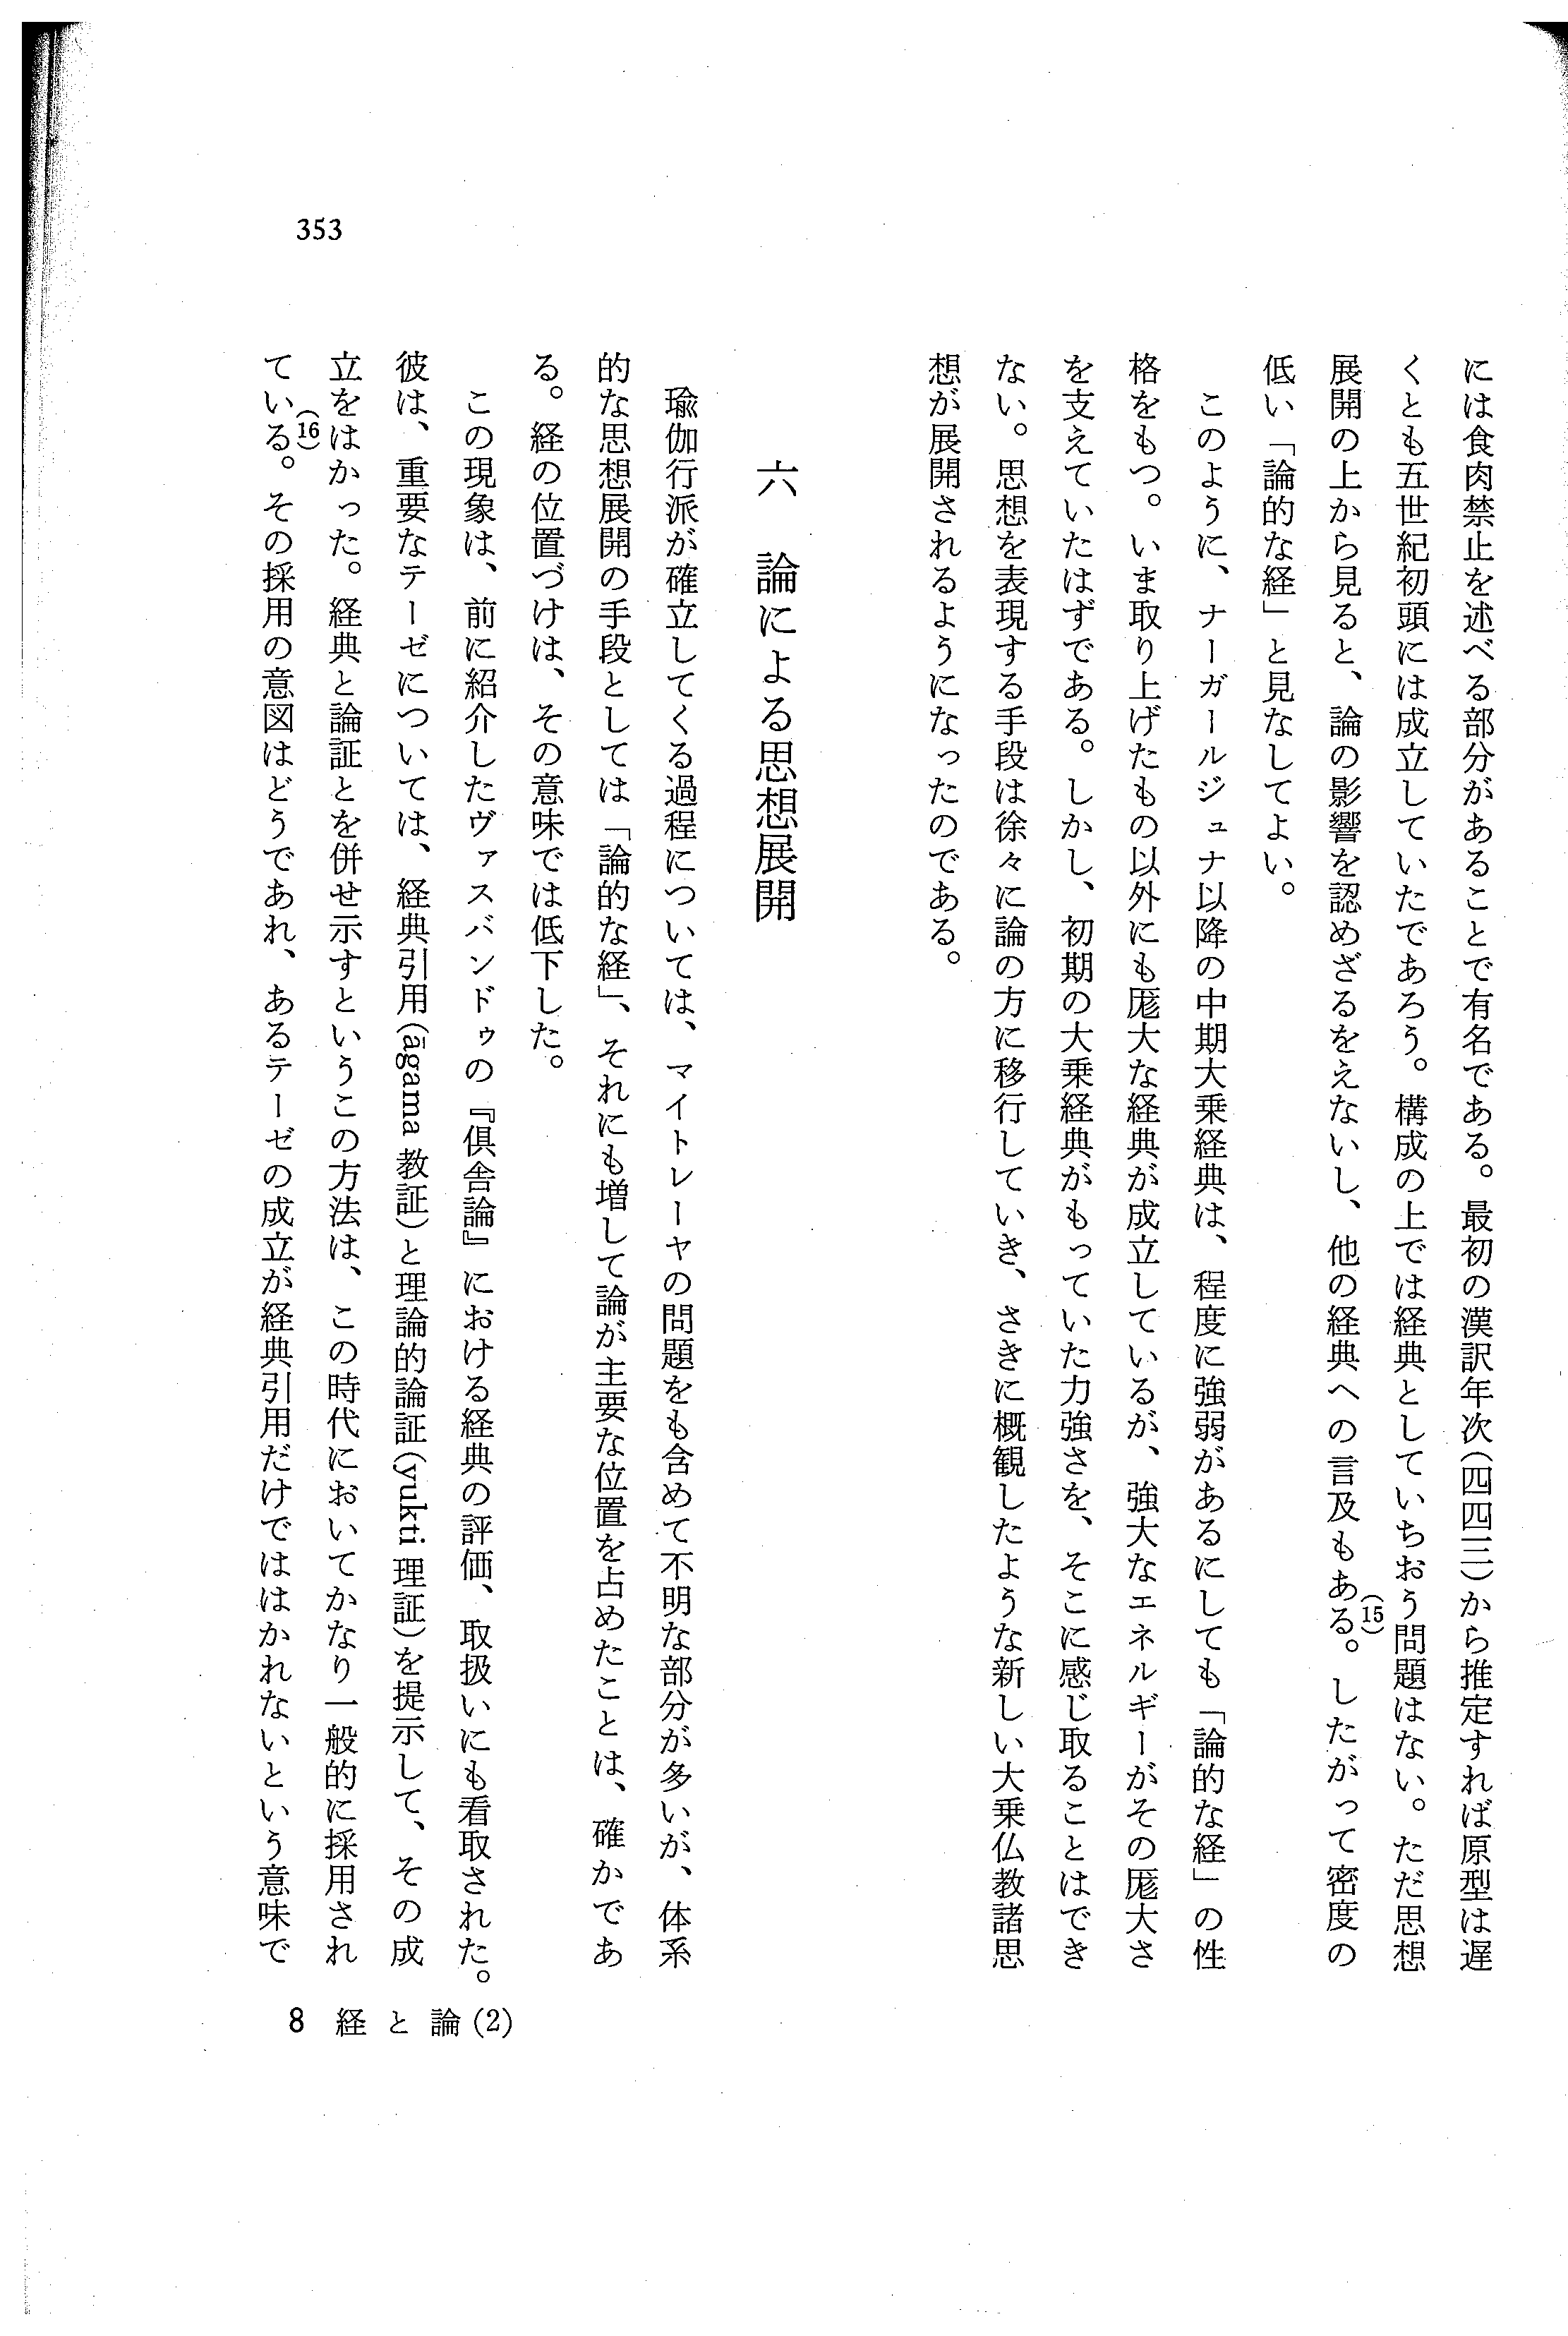 353
には食肉禁止を述べる部分があることで有名である。最初の漢訳年次(四四三)から推定すれば原型は遅
くとも五世紀初頭には成立していたであろう。構成の上では経典としていちおう問題はない。ただ思想
展開の上から見ると、論の影響を認めざるをえないし、他の経典への言及もある。(15)したがって密度の
低い「論的な経」と見なしてよい。
このように、ナーガールジュナ以降の中期大乗経典は、程度に強弱があるにしても「論的な経」の性
格をもつ。いま取り上げたもの以外にも厖大な経典が成立しているが、強大なエネルギーがその厖大さ
を支えていたはずである。しかし、初期の大乗経典がもっていた力強さを、そこに感じ取ることはでき
ない。思想を表現する手段は徐々に論の方に移行していき、さきに概観したような新しい大乗仏教諸思
想が展開されるようになったのである。
六 論による思想展開
瑜伽行派が確立してくる過程については、マイトレーヤの問題をも含めて不明な部分が多いが、体系
的な思想展開の手段としては「論的な経」、それにも増して論が主要な位置を占めたことは、確かであ
る。経の位置づけは、その意味では低下した。
この現象は、前に紹介したヴァスバンドゥの『倶舎論』における経典の評価、取扱いにも看取された。
彼は、重要なテーゼについては、経典引用(āgama 教証)と理論的論証(yukti 理証)を提示して、その成
立をはかった。経典と論証とを併せ示すというこの方法は、この時代においてかなり一般的に採用され
ている。(16)その採用の意図はどうであれ、あるテーゼの成立が経典引用だけでははかれないという意味で
8 経と論(2)